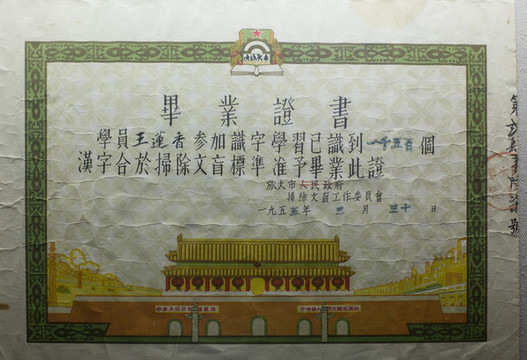 畢業證書
學員王蓮香參加識字學習已識到一千五百個
漢字合於掃除文盲標準准予畢業此證
旅大市人民政府
掃除文盲工作委員會
一九五五年三月三十日